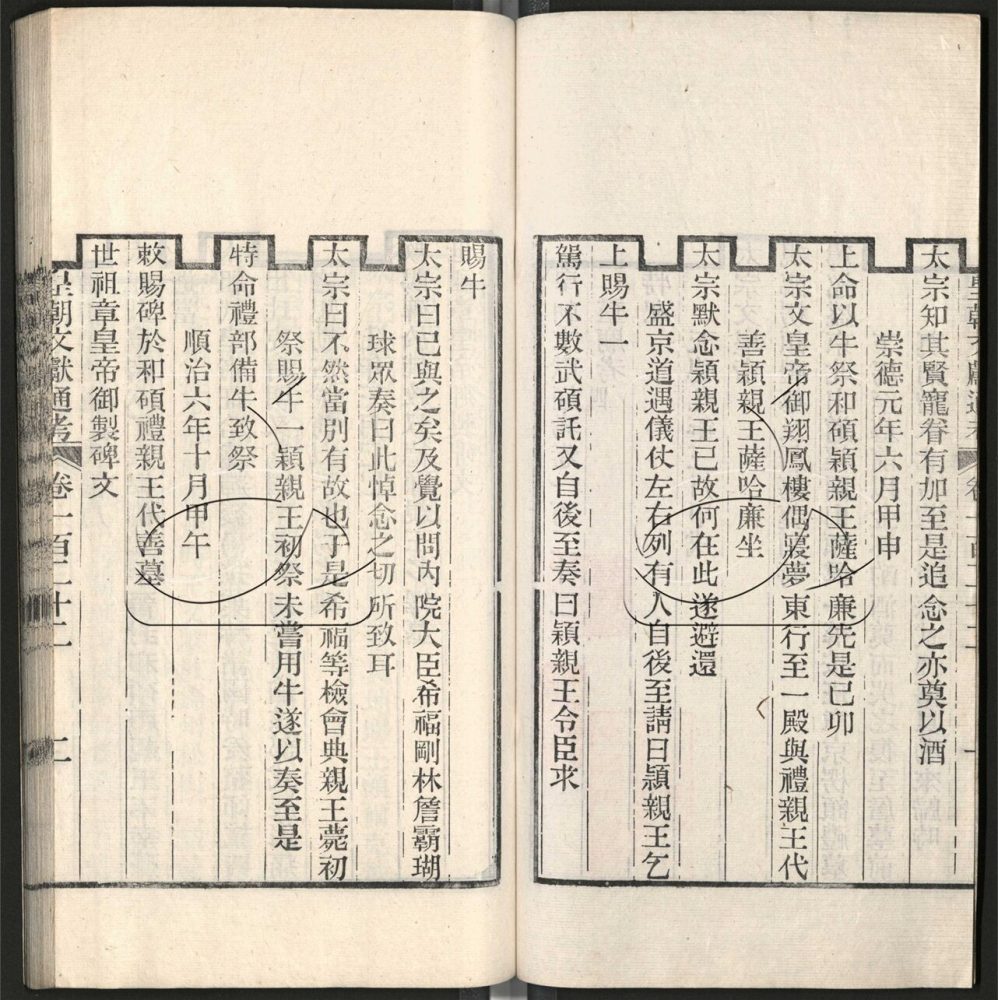 太宗知其賢寵眷有加至是追念之亦奠以酒
崇德元年六月甲申
上命以牛祭和碩穎親王薩哈廉先是己卯
太宗文皇帝御翔鳳樓偶寢夢東行至一殿與禮親王代
善穎親王薩哈廉坐
太宗默念穎親王已故何在此遂避還
盛京道遇儀仗左右列有人自後至請曰穎親王乞
上賜牛一
駕行不數武碩託又自後至奏曰穎親王令臣求
賜牛
太宗曰已與之矣及覺以問內院大臣希福剛林詹霸瑚
球眾奏曰此悼念之切所致耳
太宗曰不然當別有故也于是希福等檢會典親王薨初
祭賜牛一穎親王初祭未嘗用牛遂以奏至是
特命禮部備牛致祭
順治六年十月甲午
敕賜碑於和碩禮親王代善墓
世祖章皇帝御製碑文
皇朝文獻通考 卷一百二十二 二